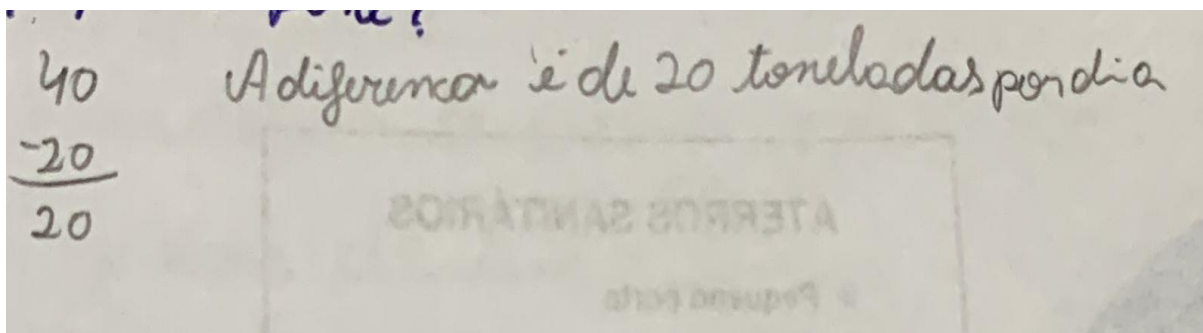 40 A diferença é de 20 toneladas por dia
-20
20
ATERROS SANITÁRIOS
• Pequeno porte